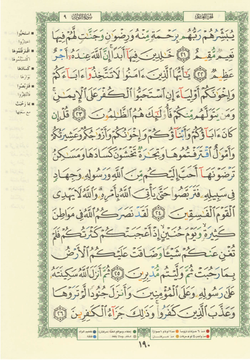 يُبَشِّرُهُمْ رَبُّهُم بِرَحْمَةٍ مِّنْهُ وَرِضْوَٰنٍ وَجَنَّٰتٍ لَّهُمْ فِيهَا
نَعِيمٌ مُّقِيمٌ ٢١ خَٰلِدِينَ فِيهَآ أَبَدًا إِنَّ ٱللَّهَ عِندَهُۥٓ أَجْرٌ
عَظِيمٌ ٢٢ يَٰٓأَيُّهَا ٱلَّذِينَ ءَامَنُوا۟ لَا تَتَّخِذُوٓا۟ ءَابَآءَكُمْ
وَإِخْوَٰنَكُمْ أَوْلِيَآءَ إِنِ ٱسْتَحَبُّوا۟ ٱلْكُفْرَ عَلَى ٱلْإِيمَٰنِ
وَمَن يَتَوَلَّهُم مِّنكُمْ فَأُو۟لَٰٓئِكَ هُمُ ٱلظَّٰلِمُونَ ٢٣ قُلْ إِن
كَانَ ءَابَآؤُكُمْ وَأَبْنَآؤُكُمْ وَإِخْوَٰنُكُمْ وَأَزْوَٰجُكُمْ وَعَشِيرَتُكُمْ
وَأَمْوَٰلٌ ٱقْتَرَفْتُمُوهَا وَتِجَٰرَةٌ تَخْشَوْنَ كَسَادَهَا وَمَسَٰكِنُ
تَرْضَوْنَهَآ أَحَبَّ إِلَيْكُم مِّنَ ٱللَّهِ وَرَسُولِهِۦ وَجِهَادٍ
فِى سَبِيلِهِۦ فَتَرَبَّصُوا۟ حَتَّىٰ يَأْتِىَ ٱللَّهُ بِأَمْرِهِۦ وَٱللَّهُ لَا يَهْدِى
ٱلْقَوْمَ ٱلْفَٰسِقِينَ ٢٤ لَقَدْ نَصَرَكُمُ ٱللَّهُ فِى مَوَاطِنَ
كَثِيرَةٍ وَيَوْمَ حُنَيْنٍ إِذْ أَعْجَبَتْكُمْ كَثْرَتُكُمْ فَلَمْ
تُغْنِ عَنكُمْ شَيْـًٔا وَضَاقَتْ عَلَيْكُمُ ٱلْأَرْضُ
بِمَا رَحُبَتْ ثُمَّ وَلَّيْتُم مُّدْبِرِينَ ٢٥ ثُمَّ أَنزَلَ ٱللَّهُ سَكِينَتَهُۥ
عَلَىٰ رَسُولِهِۦ وَعَلَى ٱلْمُؤْمِنِينَ وَأَنزَلَ جُنُودًا لَّمْ تَرَوْهَا
وَعَذَّبَ ٱلَّذِينَ كَفَرُوا۟ وَذَٰلِكَ جَزَآءُ ٱلْكَٰفِرِينَ ٢٦
١٩٠